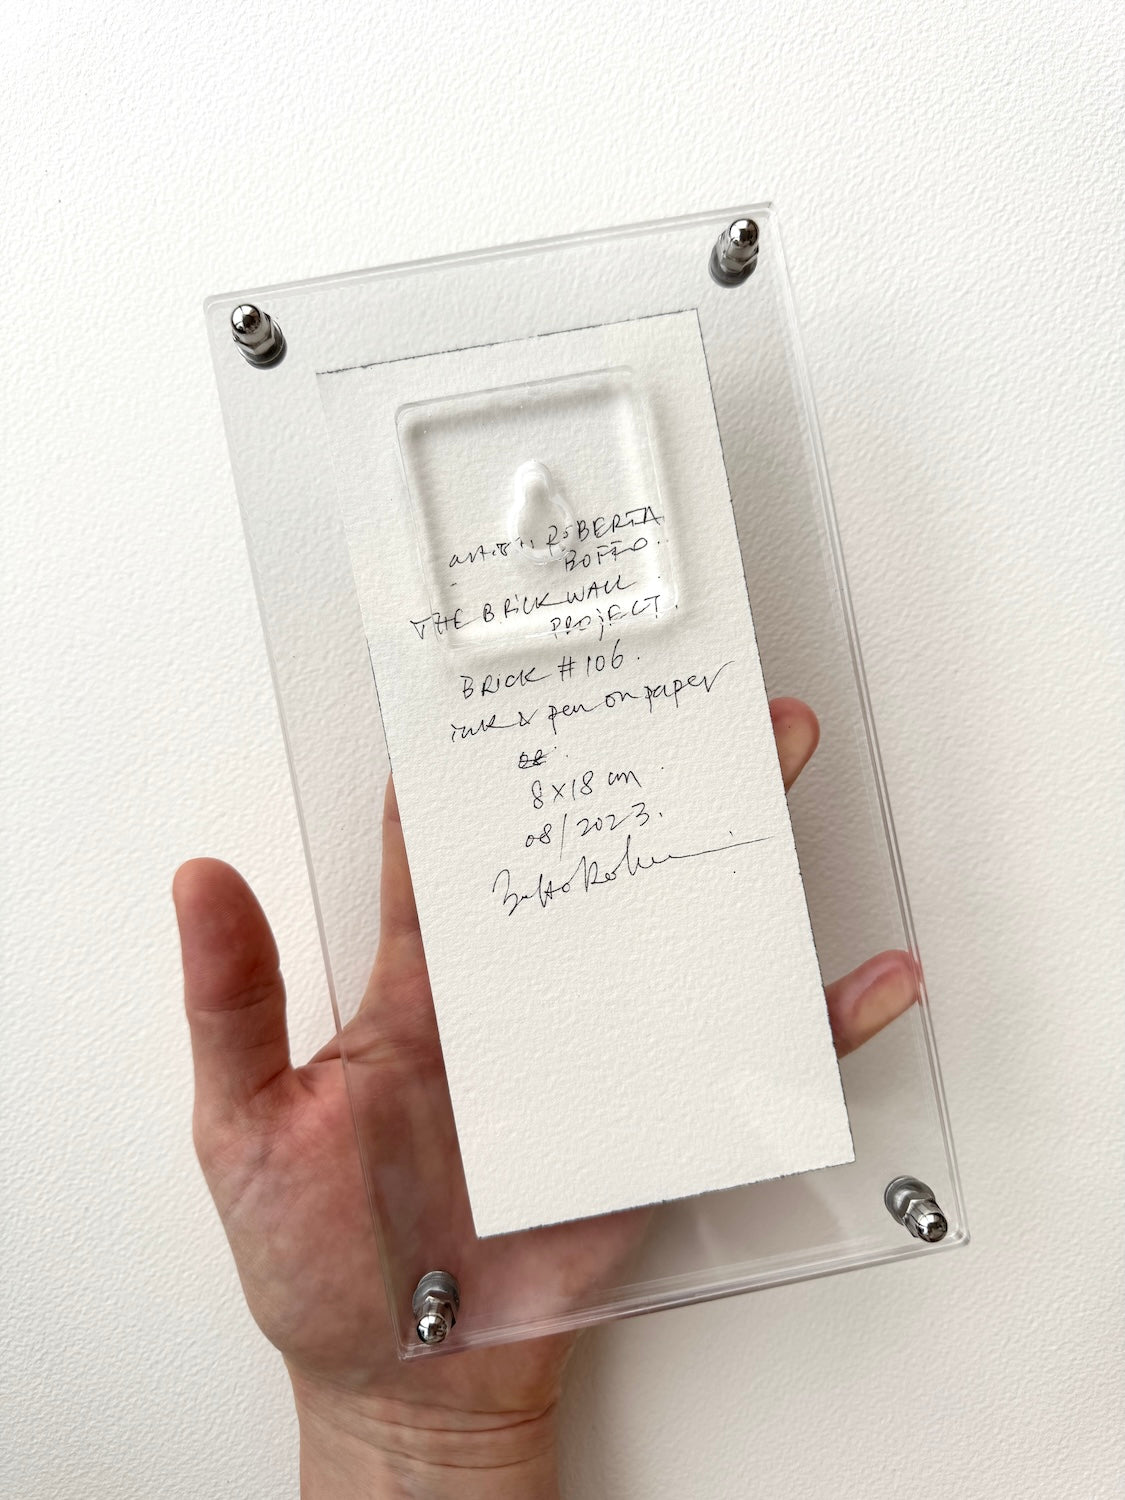 artist: ROBERTA
BOFFO.
THE BRICK WALL
PROJECT.
BRICK #106.
ink & pen on paper
8x18 cm
08/2023.